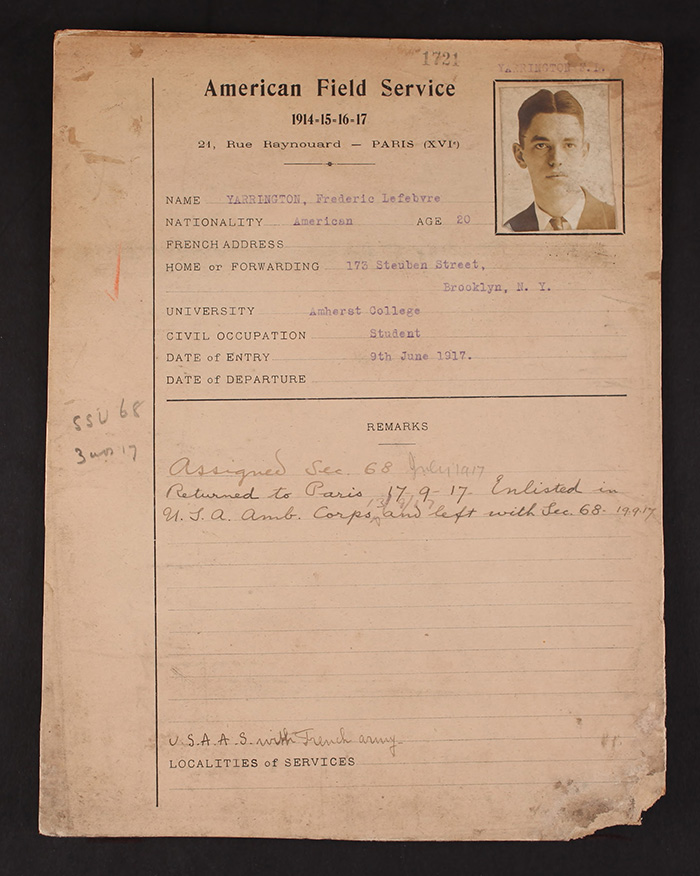 1721
YARRINGTON F.L.
American Field Service
1914-15-16-17
21, Rue Raynouard — PARIS (XVIe)
NAME YARRINGTON, Frederic Lefebvre
NATIONALITY American AGE 20
FRENCH ADDRESS
HOME or FORWARDING 173 Steuben Street,
Brooklyn, N. Y.
UNIVERSITY Amherst College
CIVIL OCCUPATION Student
DATE of ENTRY 9th June 1917.
DATE of DEPARTURE
SSU 68
3 mos 17
REMARKS
Assigned Sec. 68 July 1917
Returned to Paris, 17-9-17. Enlisted in
U.S.A. Amb. Corps, and left with Sec. 68- 19.9.17
U.S.A.A.S. with French army
LOCALITIES of SERVICES